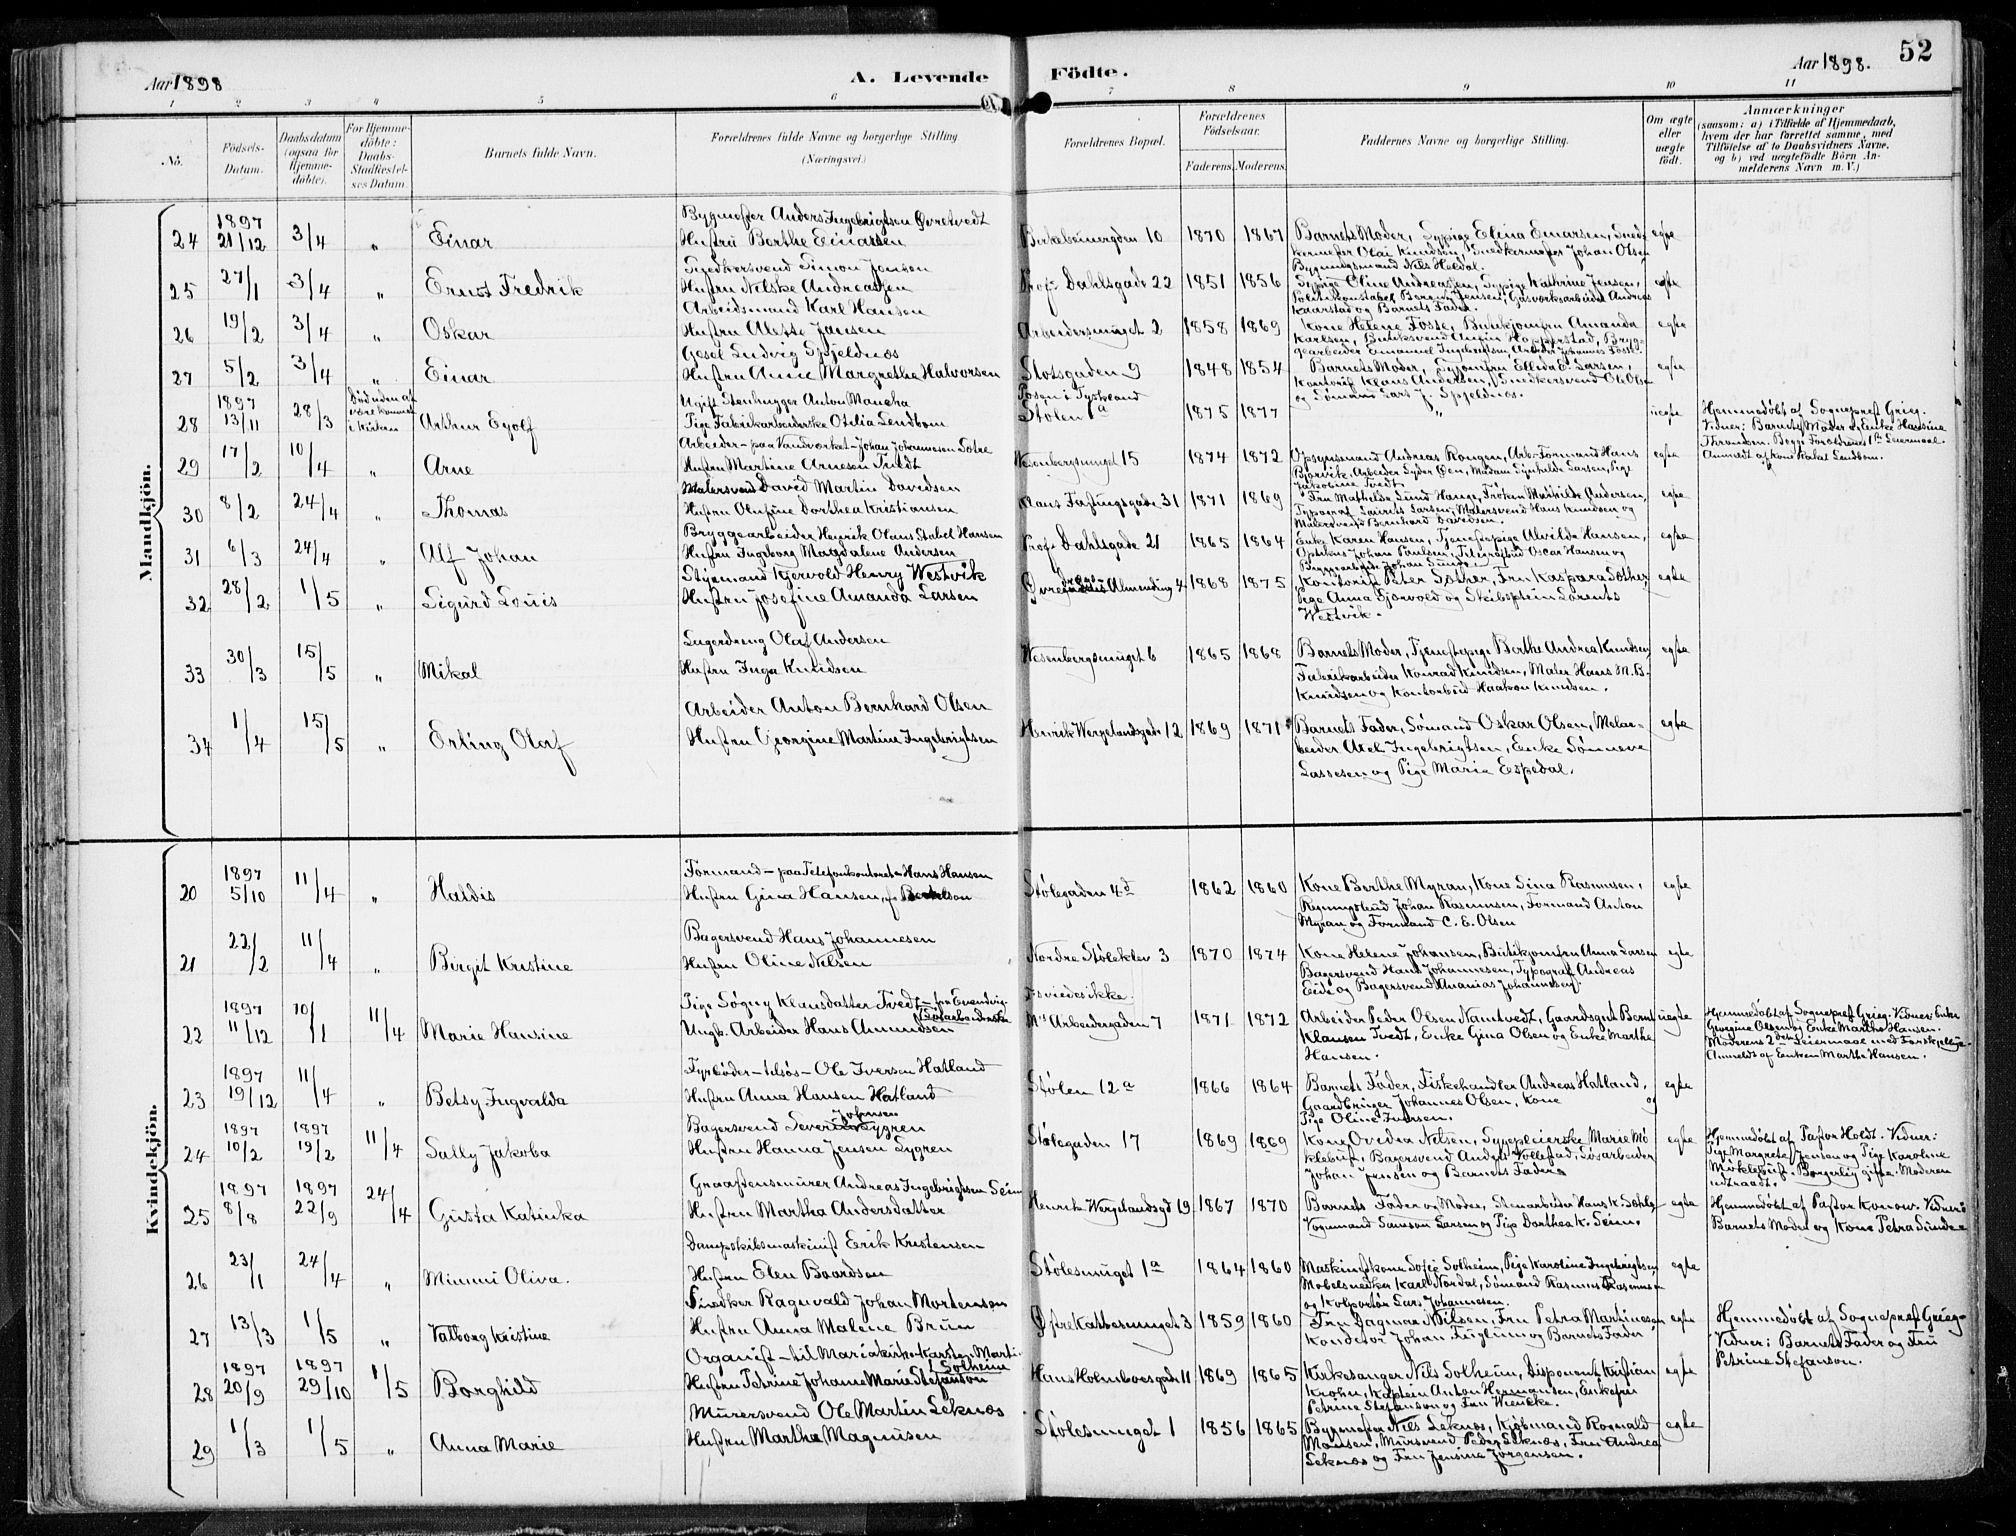 Aar 1898
A. Levende Födte.
Aar 1898.
52
1 2 3 4 5 6 7 8 9 10 11
No.
Födsels-Datum.
Daabsdatum (ogsaa for Hjemme-döbte).
For Hjemme-döbte: Daabs-Stadfæstel-ses Datum.
Barnets fulde Navn.
Forældrenes fulde Navne og borgerlige Stilling (Næringsvei.)
Forældrenes Bopæl.
Forældrenes Födselsaar.
Faderens. Moderens.
Faddernes Navne og borgerlige Stilling.
Om ægte eller uægte født.
Anmærkninger
(saasom: a) i Tilfælde af Hjemmedaab, hvem der har forrettet samme, med Tilföielse af to Daabsvidners Navne, og b) ved uægtefödte Börn Anmelderens Navn m. V.)
Mandkjön.
24 1897 21/12 3/4 " Einar
Bygmester Anders Ingebrigtsen Øvretvedt
Hustru Berthe Einarsen
10 1870 1867
Barnets Moder, Sypige Elina Einarsen, Snedkermester Olai Knudsen, Snedkermester Johan Olsen
Bygningsmand Nils Heldal.
egte
25 27/1 3/4 " Ernst Fredrik
Snedkersvend Simon Jensen
Hustru Nilske Andreassen
Prof. Dahlsgade 22 1851 1856
Sypige Oline Andreassen, Sypige Kathrine Jensen,
Politikonstabel Jensen, Gasverksarbeider Andreas
Kaarstad og Barnets Fader.
egte
26 19/2 3/4 " Oskar
Arbeidsmand Karl Hansen
Hustru Alette Jansen
Arbeidersmuget 2 1858 1869
Kone Helene Fosse, Butikjomfru Amanda
Karlsen, Butiksvend Hopperstad, Bryggearbeider Emanuel Ingebrigtsen, Arbeider Johannes Fosse.
egte
27 5/2 3/4 " Einar
Gesel Ludvig Spjeldnæs
Hustru Anne Margrethe Halvorsen
Slotsgaden 9 1848 1854
Barnets Moder, Syjomfru Larsen,
Kontorist Klaus Andersen, Snedkersvend Ole Olsen
og Sømand Lars J. Spjeldnæs.
egte
28 1897 13/11 28/3
Død uden at være kommet i Kirken
Arthur Eyolf
Ugift Stenhugger Anton Maneha
Pige Fabrikarbeiderske Otilia Lendbom
Stølen 1875 1877 "
uegte
Hjemmedøbt af Sognepræst Grieg.
Vidner: Barnets Moder og Enke Hansine
Thronsen. Begge Forældrenes 1ste Leiermaal.
Anmeldt af Kone Lendbom.
29 17/2 10/4 " Arne
Arbeider - paa Vandværket - Johan Johannesen Sotre
Hustru Martine Arnesen Tvedt
Kronbergsmuget 15 1874 1872
Opsynsmand Andreas Rongen, Arb.-Formand Hans
Bjørvik, Arbeider Øen, Madam Synhilde Larsen, Pige
Jakobine Tvedt.
egte
30 8/2 24/4 " Thomas
Malersvend David Martin Davidsen
Hustru Olufine Dorthea Kristiansen
Klaus Fastingsgade 31 1871 1869
Fru Mathilde Lund Hauge, Frøken Mathilde Andersen,
Typograf Laurits Larsen, Malersvend Hans Knudsen og
Malersvend Bernhard Davidsen.
egte
31 6/3 24/4 " Alf Johan
Bryggearbeider Henrik Olaus Stabel Hansen
Hustru Ingeborg Magdalene Andersen
Prof. Dahlsgade 21 1865 1864
Enke Karen Hansen, Tjenestepige Alvilde Hansen,
Optikus Johan Paulsen, Telegrafbud Oscar Hansen og
Bryggearbeider Johan
egte
32 28/2 1/5 " Sigurd Louis
Styrmand Kjervold Henry Westvik
Hustru Josefine Amanda Larsen
Øvre Almending 4 1868 1875
Kontorist Peter Sother, Fru Kaspara Sother,
Pige Anna Fjorvold og Skibsptein Lorents
Westvik.
egte
33 30/3 15/5 " Mikal
Lagerdreng Olaf Andersen
Hustru Inga Knudsen
Wesenbergsmuget 6 1865 1868
Barnets Moder, Tjenestepige Berthe Andrea Knudsen
Fabrikarbeider Konrad Knudsen, Maler Hans M. B.
Knudsen og Kontorbud Haakon Knudsen.
egte
34 1/4 15/5 " Erling Olaf
Arbeider Anton Bernhard Olsen
Hustru Georgine Martine Ingebrigtsen
Henrik Wergelandsgade 12 1869 1871
Barnets Fader, Sømand Oskar Olsen, Melarbeider Axel Ingebrigtsen, Enke Sønneve
Lassesen og Pige Maria Espedal.
egte
Kvindekjön.
20 1897 5/10 11/4 " Haldis
Formand - paa Telefonkontoret - Hans Hansen
Hustru Gina Hansen, f.
Stølegaden 4d 1862 1860
Kone Berthe Myran, Kone Sina Rasmusen,
Regningsbud Johan Rasmusen, Formand Anton
Myran og Formand C. E. Olsen
egte
21 22/2 11/4 " Birgit Kristine
Bagersvend Hans Johannesen
Hustru Oline Nilsen
Nordre Støleklev 3 1870 1874
Kone Helene Johansen, Butikjomfru Anna Larsen
Bagersvend Hans Johannesen, Typograf Andreas
Eide og Bagersvend Ananias Johannesen.
egte
22 1897 11/12 10/1 11/4 Marie Hansine
Pige Søgny Klausdatter Tvedt - fra Evendvig.
Ungk. Arbeider Hans Amundsen
vies ikke.
Arbeidergaden 7 1871 1872
Arbeider Peder Olsen Namtvedt, Gaardsgut Bernt
Klausen Tvedt, Enke Gina Olsen og Enke Marthe
Hansen.
uegte
Hjemmedøbt af Sognepræst Grieg. Vidner: Enke
Georgine Olsen og Enke Marthe Hansen.
Moderens 2det Leiermaal med Forskjellige.
Anmeldt af Enken Marthe Hansen.
23 1897 19/12 11/4 " Betsy Ingvalda
Fyrbøder - tilsøs - Ole Iversen Hatland
Hustru Anna Hansen Hatland
Stølen 12a 1866 1864
Barnets Fader, Fiskehandler Andreas Hatland,
Gaardbruger Johannes Olsen, Kone og
Pige Oline Iversen.
egte
24 1897 10/2 1897 19/2 11/4 Sally Jakoba
Bagersvend Severin Johnsen Lygren
Hustru Hanna Jensen Lygren
Stølegaden 17 1869 1869
Kone Ovidia Nilsen, Sygepleierske Marie Møklebust, Bagersvend Anders Vollestad, Løsarbeider
Johan Jensen og Barnets Fader.
egte
Hjemmedøbt af Pastor Holdt. Vidner:
Pige Margrete Jensen og Pige Karoline
Møklebust. Borgerlig gifte. Moderen
udtraadt.
25 1897 8/8 1897 22/9 24/4 Gusta Katinka
Graastensmurer Andreas Ingebrigtsen Seim
Hustru Martha Andersdatter
Henrik Wergelandsgd 19 1867 1870
Barnets Fader og Moder, Stenarbeider Hans K.
Vognmand Samson Larsen og Pige Dorthea K. Seim.
egte
Hjemmedøbt af Pastor Konow. Vidner:
Barnets Moder og Kone Petra Sunde
26 23/1 24/4 " Mimmi Oliva.
Dampskibsmaskinist Erik Kristensen
Hustru Elen Baardsen
Stølesmuget 1a 1864 1860
Maskinistkone Sofie Solheim, Pige Karoline Ingebrigtsen
Møbelsnedker Karl Nordal, Sømand Rasmus Rasmussen
og Kolportør Lars Johannesen.
egte
27 13/3 1/5 " Valborg Kristine
Snedker Ragnvald Johan Mortensen
Hustru Anna Malene Brun
Øfre Kattesmuget 3 1859 1860
Fru Dagmar Nilsen, Fru Petra Martinesen
Konditor Johan Fuglum og Barnets Fader
egte
28 1897 20/9 1897 29/10 1/5 Borghild
Organist - til Mariakirke - Karsten Martin Solheim
Hustru Petrine Johanne Marie Stefanson
Hans Holmboesgade 11 1869 1865
Kirkesanger Nils Solheim, Disponent Kristian
Krohn, Kaptein Anton Hermansen, Enkefru
Petrine Stefanson og Fru Wiencke.
egte
Hjemmedøbt af Sognepræst Grieg.
Vidner: Barnets Fader og Fru
Petrine Stefanson.
29 1/3 1/5 " Anna Marie
Murersvend Ole Martin Leknæs
Hustru Martha Magnusen
Stølesmuget 1 1856 1865
Bygmester Nils Leknæs, Kjøbmand Romald
Monsen, Mursvend Peder Leknæs, Fru Andrea
Leknæs og Fru Jensine Jørgensen.
egte